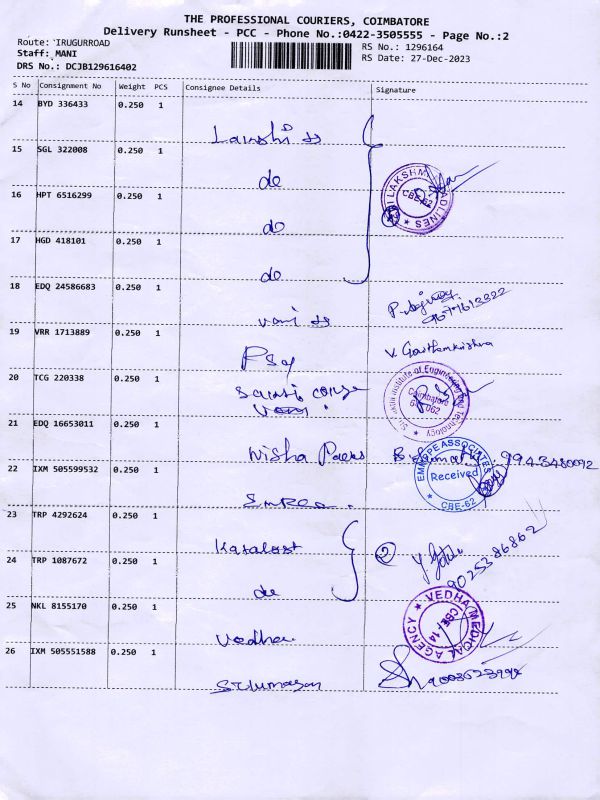 THE PROFESSIONAL COURIERS, COIMBATORE
Delivery Runsheet - PCC - Phone No.:0422-3505555 - Page No.:2
Route: IRUGURROAD
Staff: MANI
DRS No.: DCJB129616402
RS No.: 1296164
RS Date: 27-Dec-2023
S No Consignment No Weight PCS Consignee Details Signature
14 BYD 336433 0.250 1
15 SGL 322008 0.250 1
do
16 HPT 6516299 0.250 1
do
17 HGD 418101 0.250 1
do
CBE-62
18 EDQ 24586683 0.250 1
19 VRR 1713889 0.250 1
V. Gowthamkrishna
20 TCG 220338 0.250 1
Institute of Engineering and Technology
Coimbatore
21 EDQ 16653011 0.250 1
Nisha 9943480092
22 IXM 505599532 0.250 1
ASSOCIATES
Received
CBE-62
23 TRP 4292624 0.250 1
24 TRP 1087672 0.250 1
do 9025386862
25 NKL 8155170 0.250 1
Vedha
VEDHA MEDICAL AGENCY
CBE-14
26 IXM 505551588 0.250 1